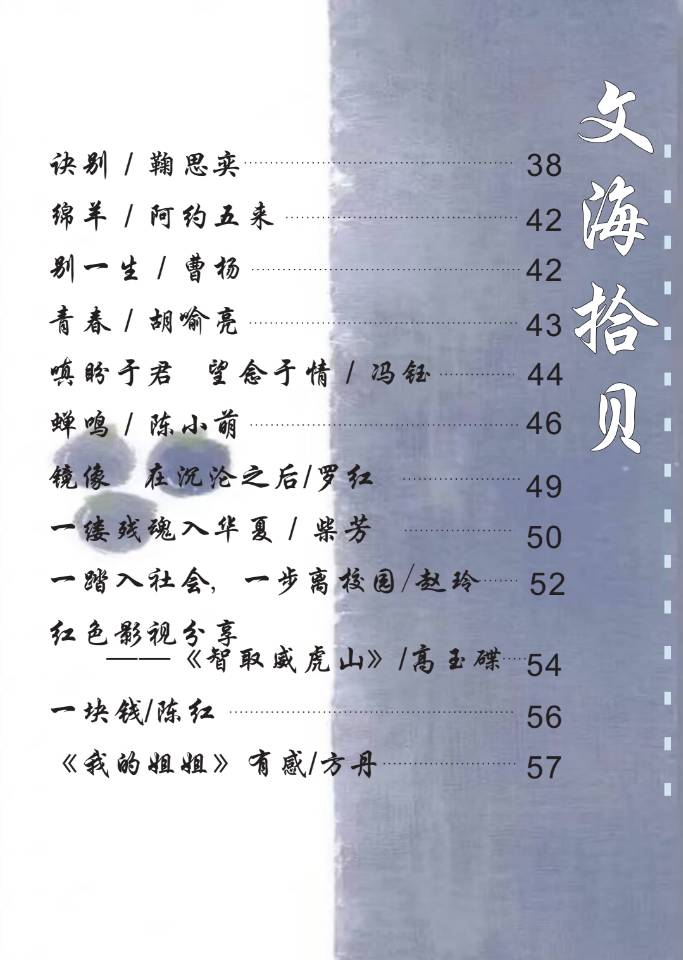 文海拾贝
诀别 / 鞠思奕 38
绵羊 / 阿约五来 42
别一生 / 曹杨 42
青春 / 胡喻亮 43
嗔盼于君 望念于情 / 冯钰 44
蝉鸣 / 陈小萌 46
镜像 在沉沦之后/罗红 49
一缕残魂入华夏 / 柴芳 50
一踏入社会，一步离校园/赵玲 52
红色影视分享
——《智取威虎山》/高玉碟 54
一块钱/陈红 56
《我的姐姐》有感/方丹 57